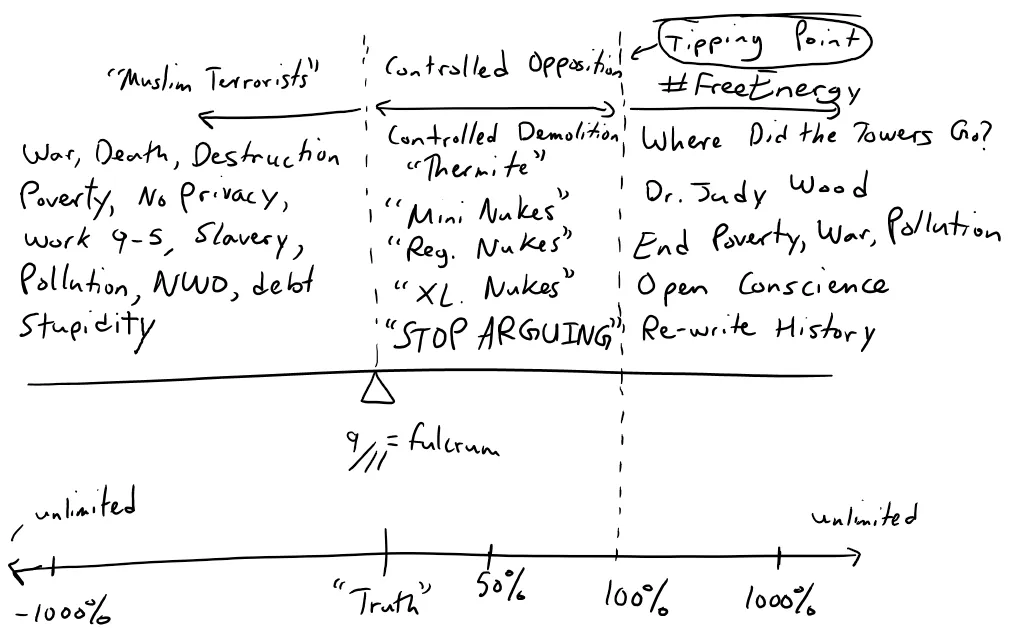 Tipping Point
"Muslim Terrorists"
Controlled Opposition
#FreeEnergy
War, Death, Destruction
Poverty, No Privacy,
Work 9-5, Slavery,
Pollution, NWO, debt
Stupidity
Controlled Demolition
"Thermite"
"Mini Nukes"
"Reg. Nukes"
"XL. Nukes"
"STOP ARGUING"
Where Did the Towers Go?
Dr. Judy Wood
End Poverty, War, Pollution
Open Conscience
Re-write History
9/11 = fulcrum
unlimited
unlimited
-1000%
"Truth"
50%
100%
1000%